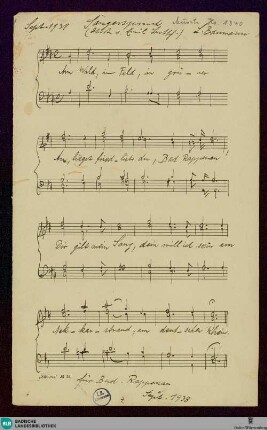 Sept. 1938 Sängerspruch
Am Wald, im Feld, in grü - ner
An, liegst fried - lich du, Bad Rappenau!
Dir gilt mein Sang, dein will ich sein am
Nek - kar - strand, am deutschen Rhein
für Bad Rappenau
Sept. 1938
BLB BADISCHE
LANDESBIBLIOTHEK
Baden-Württemberg